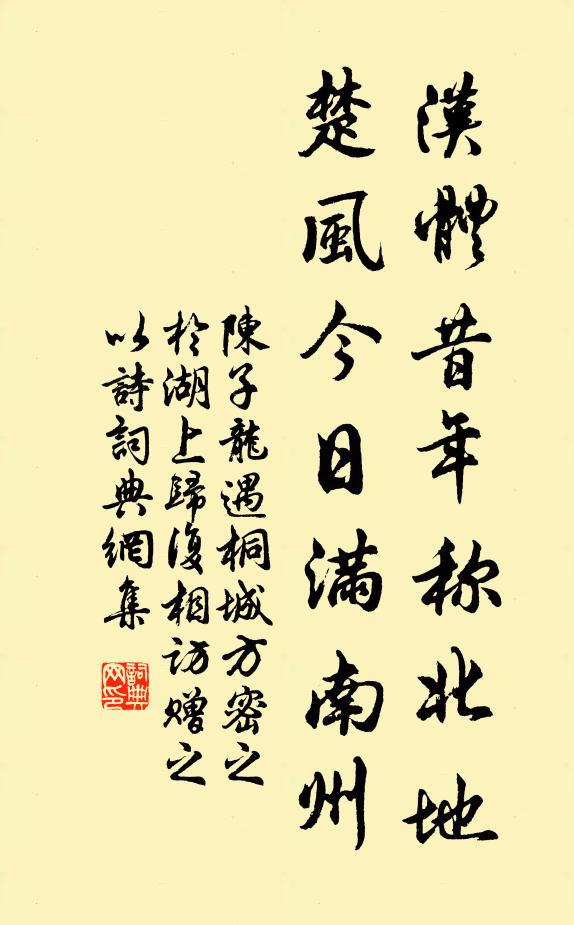 漢體昔年称北地
楚風今日滿南州
陳子龍遇桐城方密之
於湖上歸復相訪贈之
以詩詞典網集
詞典網印